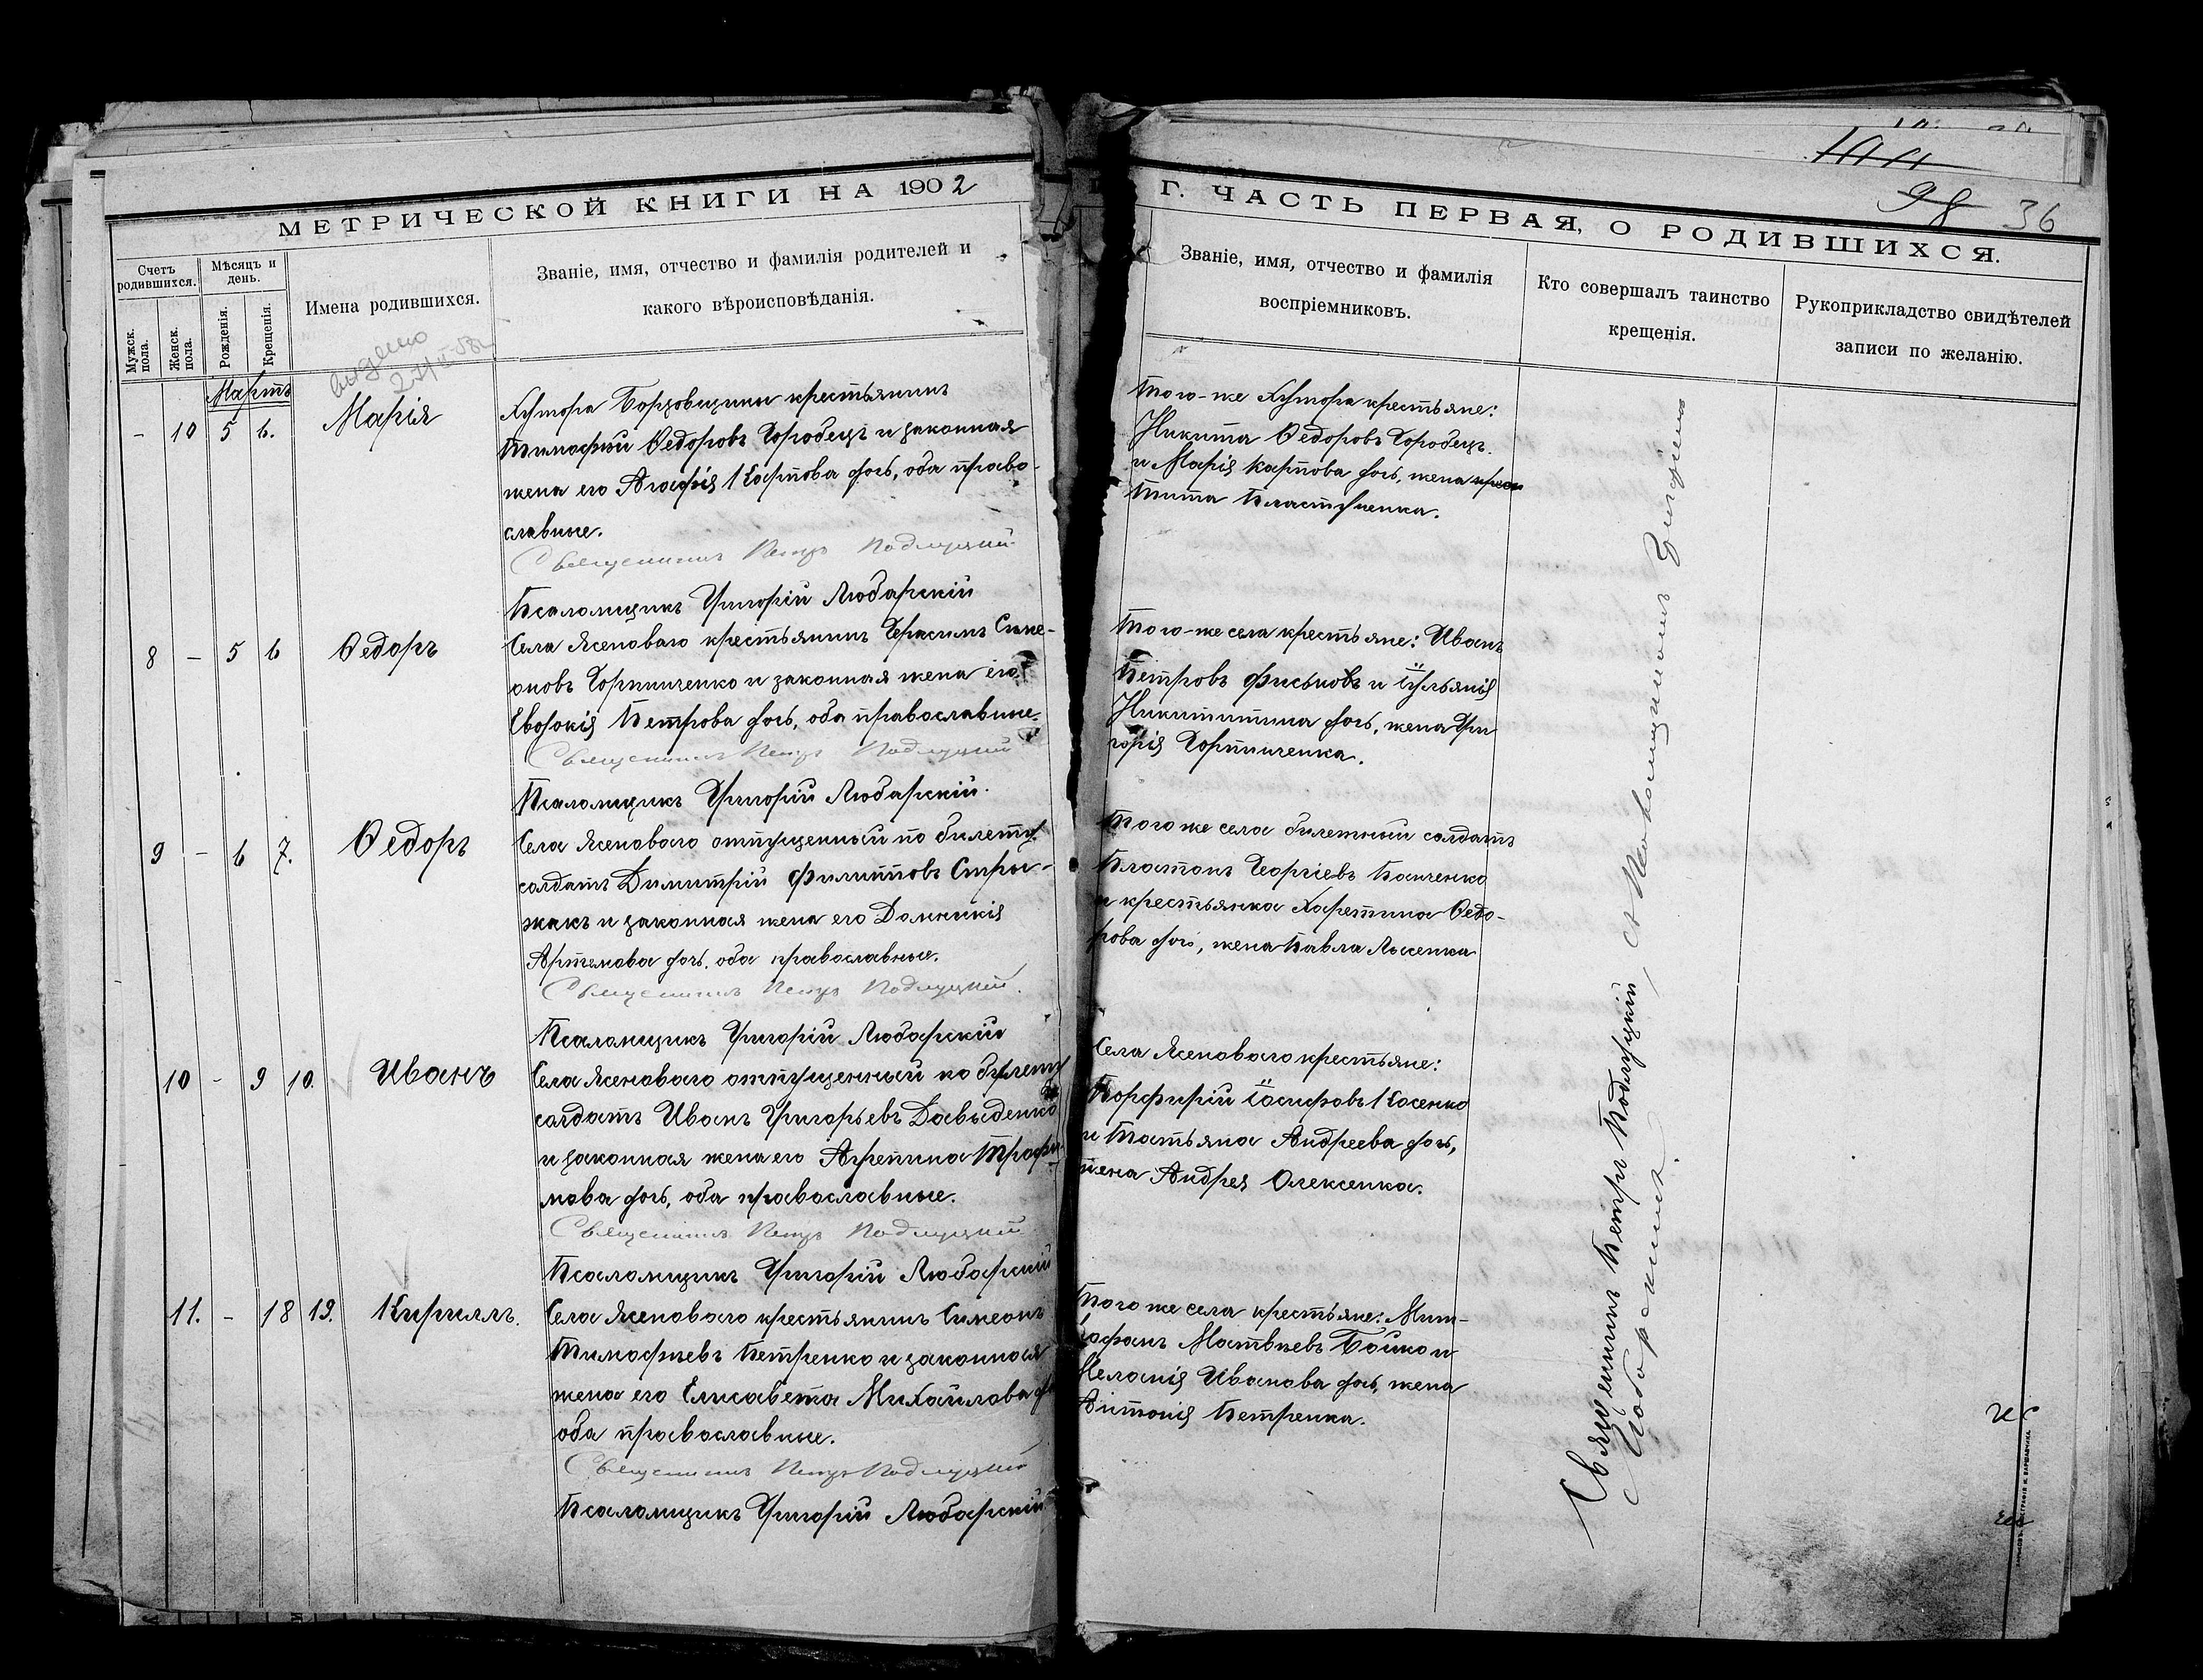 МЕТРИЧЕСКОЙ КНИГИ НА 1902
Г. ЧАСТЬ ПЕРВАЯ, О РОДИВШИХСЯ.
98 36
Счетъ родившихся.
Мужск. пола.
Женск. пола.
Мѣсяцъ и день.
Рожденія.
Крещенія.
Имена родившихся.
Званіе, имя, отчество и фамилія родителей и
какого вѣроисповѣданія.
Званіе, имя, отчество и фамилія
воспріемниковъ.
Кто совершалъ таинство
крещенія.
Рукоприкладство свидѣтелей
записи по желанію.
Мартъ
- 10 5 6. Марія
Хутора Бордовщини крестьянинъ
Тимофѣй Ѳедоровъ Городецъ и законная
жена его Агафія Карпова дочь, оба право-
славные.
Священникъ Петръ Подлуцкій
Псаломщикъ Григорій Любарскій
Того-же Хутора крестьяне:
Никита Ѳедоровъ Городецъ.
и Марія Карпова дочь, жена
Тита Пластуненка.
8 - 5 6 Ѳедоръ
Села Ясеноваго крестьянинъ Герасимъ Симе-
оновъ Горпинченко и законная жена его
Евдокія Петрова дочь, оба православные.
Священникъ Петръ Подлуцкій
Псаломщикъ Григорій Любарскій.
Того-же села крестьяне: Иванъ
Петровъ Фиськовъ и Іульянія
Никитична дочь, жена Гри
горія Горпинченка.
9 - 6 7. Ѳедоръ
Села Ясеноваго отпущенный по билету
солдатъ Димитрій Филипповъ Стри-
жакъ и законная жена его Домникія
Артемова дочь, оба православные.
Священникъ Петръ Подлуцкій.
Псаломщикъ Григорій Любарскій
Того же села билетный солдатъ
Платонъ Георгіевъ Панченко
и крестьянка Харетина Ѳедо-
рова дочь, жена Павла Лысенка
10 - 9 10. Иванъ
Села Ясеноваго отпущенный по билету
солдатъ Иванъ Григорьевъ Давыденко
и законная жена его Агрепина Трофи-
мова дочь, оба православные.
Священникъ Петръ Подлуцкій
Псаломщикъ Григорій Любарскій
Села Ясеноваго крестьяне:
Порфирій Іосифовъ Косенко
и Татьяна Андреева дочь,
жена Андрея Олексенка.
11. - 18 19. Кириллъ.
Села Ясеноваго крестьянинъ Симеонъ
Тимофѣевъ Петренко и законная
жена его Елисавета Михайлова
оба православные.
Священникъ Петръ Подлуцкій
Псаломщикъ Григорій Любарскій
Того же села крестьяне: Мит-
рофанъ Матвѣевъ Бойко и
Меланія Иванова дочь, жена
Антонія Петренка.
Священникъ Петръ Подлуцкій, съ Псаломщикомъ Григоріемъ
Любарскимъ.